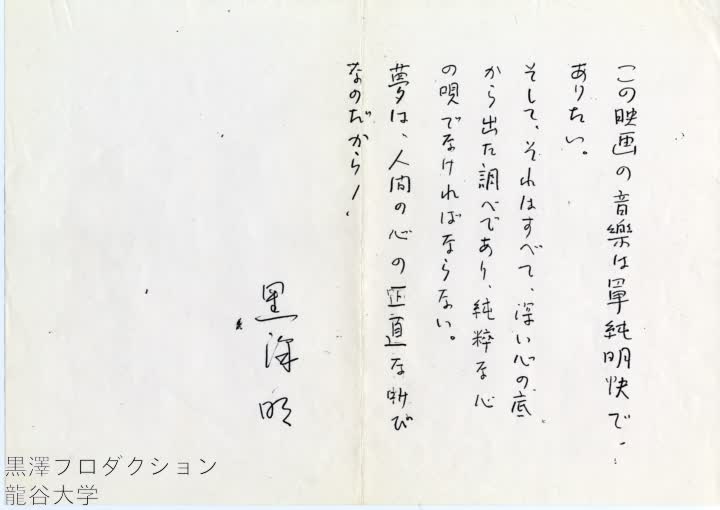 この映画の音樂は單純明快で
ありたい。
そして、それはすべて、深い心の底
から出た調べであり、純粋な心
の唄でなければならない。
夢は、人間の心の正直な叫び
なのだから！
黒澤
明
黒澤フロダクション
龍谷大学